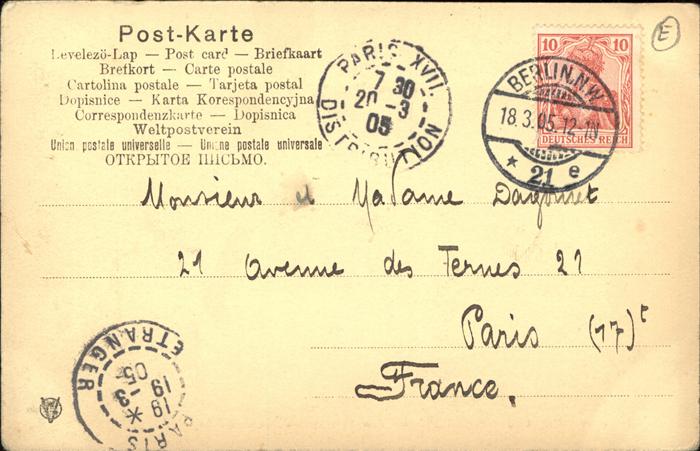 Post-Karte
Levelezö-Lap — Post card — Briefkaart
Brefkort — Carte postale
Cartolina postale — Tarjeta postal
Dopisnice — Karta Korespondencyjna
Correspondenzkarte — Dopisnica
Weltpostverein
Union postale universelle — Unione postale universale
ОТКРЫТОЕ ПИСЬМО.
PARIS XVII
7 30
20 - 3
05
DISTRIBUTION
10 10
DEUTSCHES REICH
BERLIN.N.W.
18.3.05.12-1N
* 21 e
E
Monsieur et Madame Dagonet
21 avenue des Ternes 21
Paris (17)e
France.
PARIS
ETRANGER
19
19 - 3
05